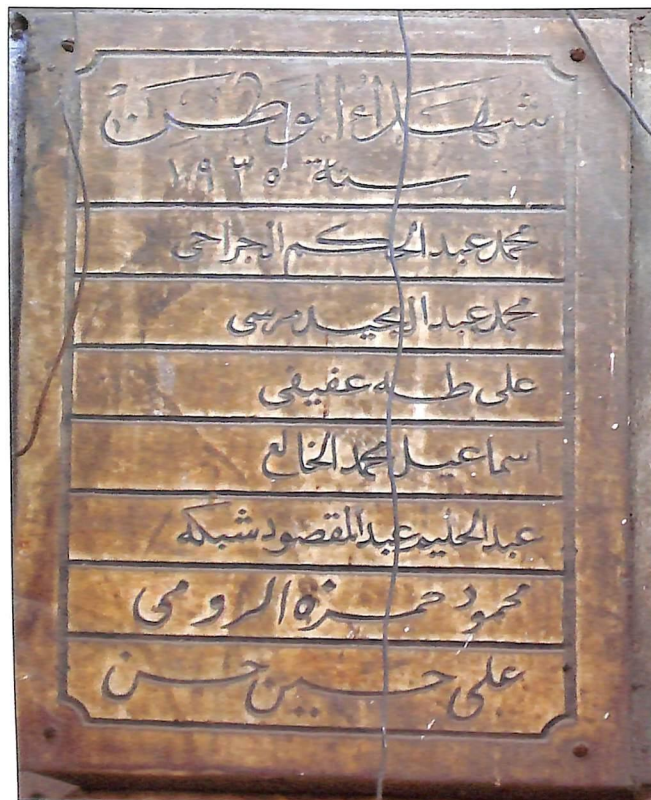 شهداء الوطن
سنة ١٩٣٥
محمد عبد الحكم الجراحى
محمد عبد المجيد مرسى
على طه عفيفى
اسماعيل محمد الخالع
عبد الحليم عبد المقصود شبكه
محمود حمزه الرومى
على حسين حسن